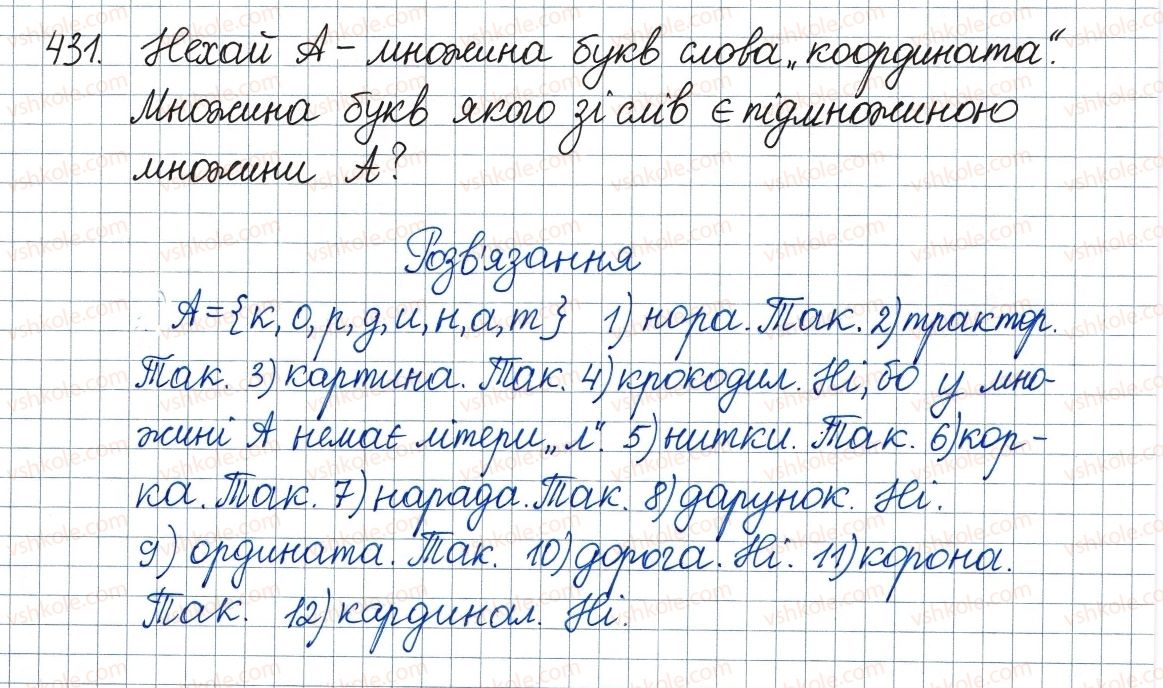 431. Нехай А – множина букв слова „координата“.
Множина букв якого зі слів є підмножиною
множини А?
Розв'язання
А={к, о, р, д, и, н, а, т} 1) нора. Так. 2) трактор.
Так. 3) картина. Так. 4) крокодил. Ні, бо у мно-
жині А немає літери „л“. 5) нитки. Так. 6) кор-
ка. Так. 7) нарада. Так. 8) дарунок. Ні.
9) ордината. Так. 10) дорога. Ні. 11) корона.
Так. 12) кардинал. Ні.